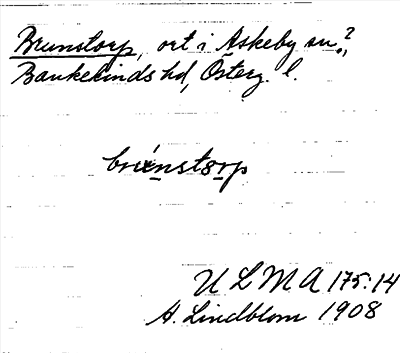 Brunstorp, ort i Askeby sn?,
Bankekinds hd, Österg. l.
brúnstorp
ULMA 175:14
A. Lindblom 1908